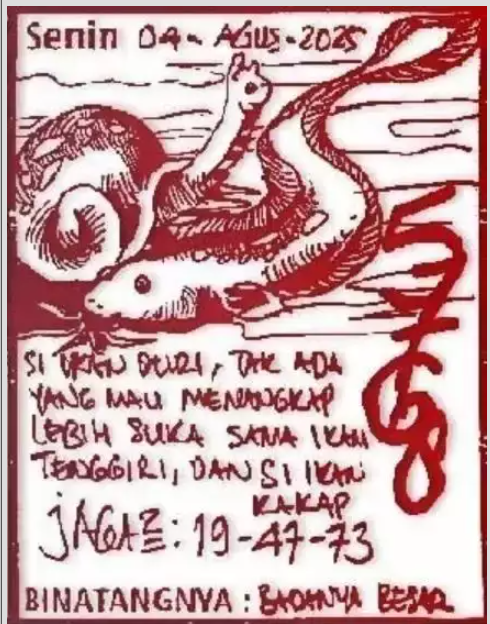 Senin 04-AGUS-2025
SI IKAN DURI, TAK ADA
YANG MAU MENANGKAP
LEBIH SUKA SAMA IKAN
TENGGIRI, DAN SI IKAN
KAKAP
JAGA2: 19-47-73
BINATANGNYA: BADANNYA BESAR